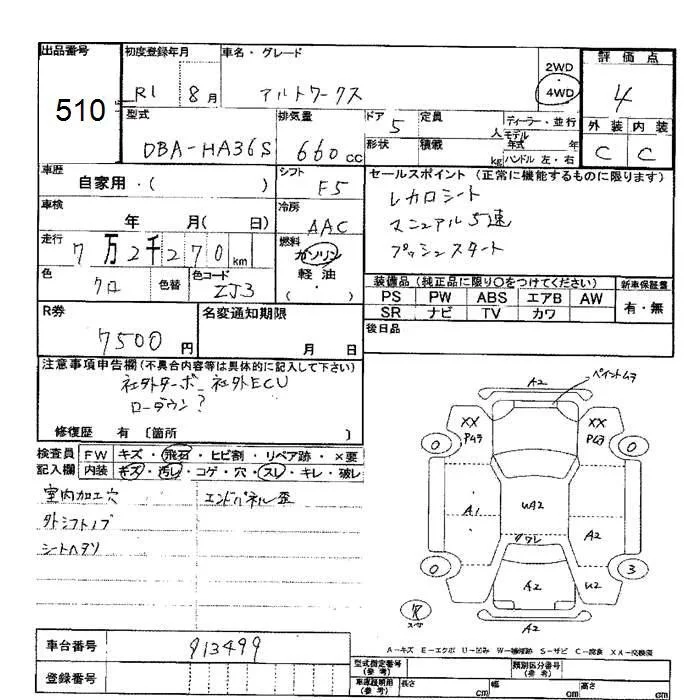 出品番号
510
初度登録年月
R1 8月
車名・グレード
アルトワークス
2WD
4WD
評価点
4
外装 内装
C C
型式
DBA-HA36S
排気量
660cc
ドア
5
形状
定員
人
積載
kg
ディーラー・並行
モデル年式 年
ハンドル 左・右
車歴
自家用・( )
シフト
F5
車検
年 月( 日)
冷房
AAC
走行
7万2千270km
燃料
ガソリン
軽油
( )
色
クロ
色替
色コード
ZJ3
セールスポイント (正常に機能するものに限ります)
レカロシート
マニュアル5速
プッシュスタート
装備品 (純正品に限り○をつけてください)
PS PW ABS エアB AW
SR ナビ TV カワ
新車保証書
有・無
後日品
R券
7500円
名変通知期限
月 日
注意事項申告欄(不具合内容等は具体的に記入して下さい)
社外ターボ 社外ECU
ローダウン?
修復歴 有 〔箇所 〕
検査員記入欄
FW キズ・飛石・ヒビ割・リペア跡・×要
内装 キズ・汚レ・コゲ・穴・スレ・キレ・破レ
室内加工穴
外シフトノブ
シートヘタリ
エンドパネル歪
ペイントムラ
A2
XX
XX
0
0
A1
UA2
ワレ
A2
0
3
A2
U2
R
スペア
A2
A-キズ E-エクボ U-凹み W-補修跡 S-サビ C-腐食 XX-交換済
車台番号
913499
登録番号
型式指定番号
(参考)
類別区分番号
(参考)
車検証明用
(参考)
長さ cm
幅 cm
高さ cm